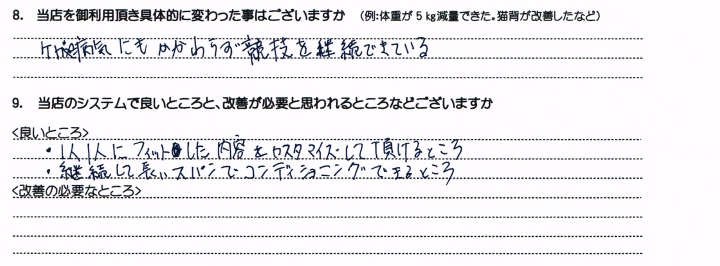 8. 当店を御利用頂き具体的に変わった事はございますか （例：体重が5kg減量できた。猫背が改善したなど）
ケガや病気にもかかわらず競技を継続できている
9. 当店のシステムで良いところと、改善が必要と思われるところなどございますか
<良いところ>
・1人1人にフィットした内容をカスタマイズして頂けるところ
・継続して長いスパンでコンディショニングできるところ
<改善の必要なところ>